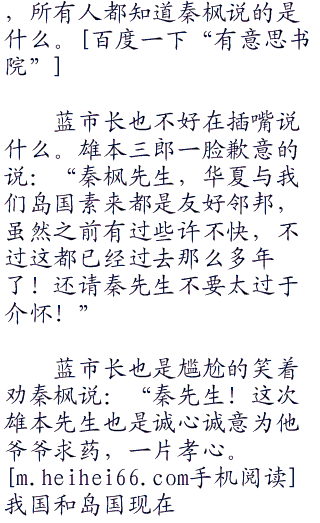 ，所有人都知道秦枫说的是
什么。[百度一下“有意思书
院”]
蓝市长也不好在插嘴说
什么。雄本三郎一脸歉意的
说：“秦枫先生，华夏与我
们岛国素来都是友好邻邦，
虽然之前有过些许不快，不
过这都已经过去那么多年
了！还请秦先生不要太过于
介怀！”
蓝市长也是尴尬的笑着
劝秦枫说：“秦先生！这次
雄本先生也是诚心诚意为他
爷爷求药，一片孝心。
[m.heihei66.com手机阅读]
我国和岛国现在